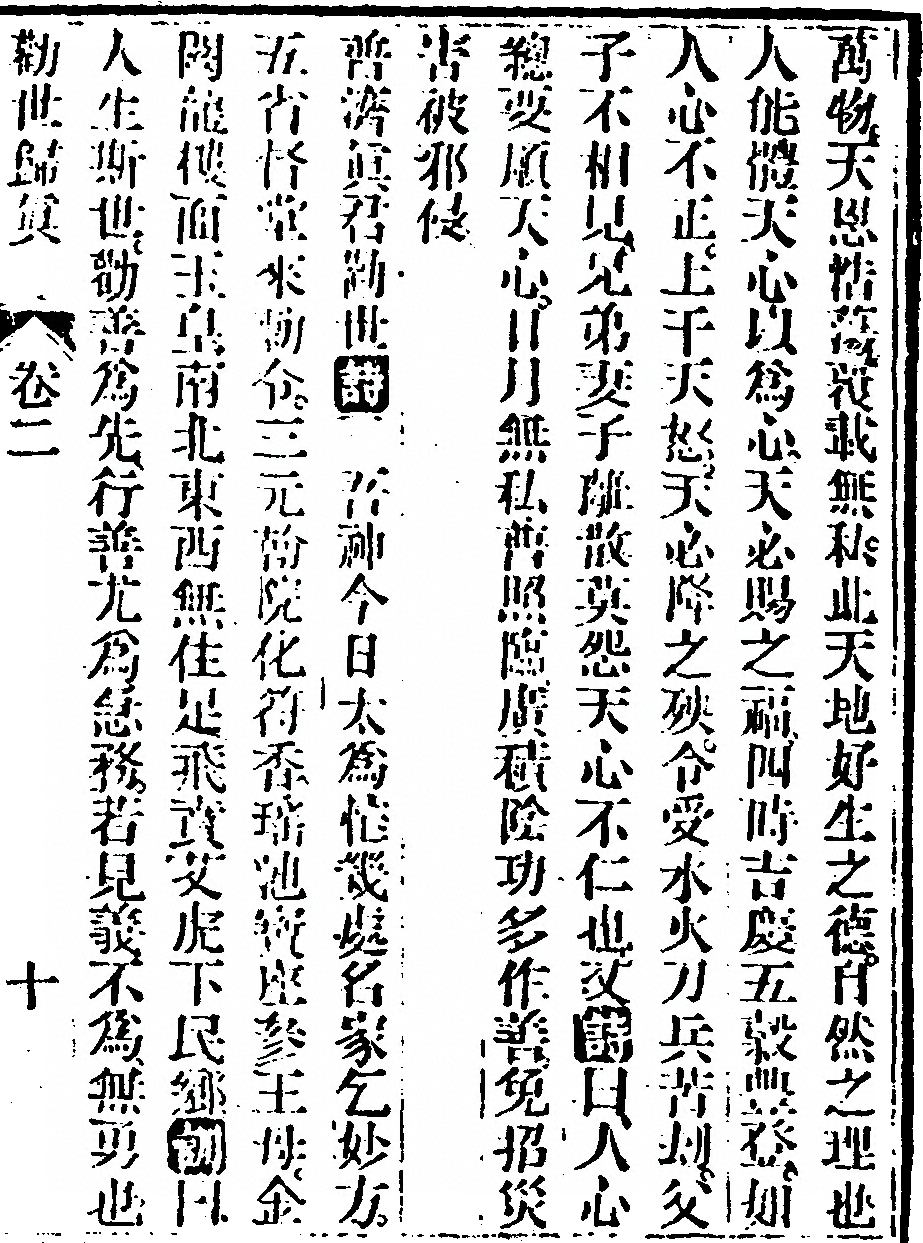 萬物、天恩浩蕩、覆載無私。此天地好生之德。自然之理也
人能體天心以爲心、天必賜之福、四時吉慶五穀豐登、如
人心不正。上干天怒。天必降之殃。令受水火刀兵苦刼。父
子不相見、兄弟妻子離散莫怨天心不仁也又詩曰、人心
總要順天心。日月無私普照臨廣積陰功多作善免招災
害被邪侵
普濟眞君勸世詩 吾神今日太爲忙幾處名家乞妙方。
五省督堂來勅令。三元督院化符香瑤池寳座參王母。金
闕龍樓面玉皇南北東西無住足飛鸞艾虎下民鄉 訓曰
人生斯世、勸善爲先、行善尤爲急務。若見義不爲、無勇也
勸世歸眞 卷二 十